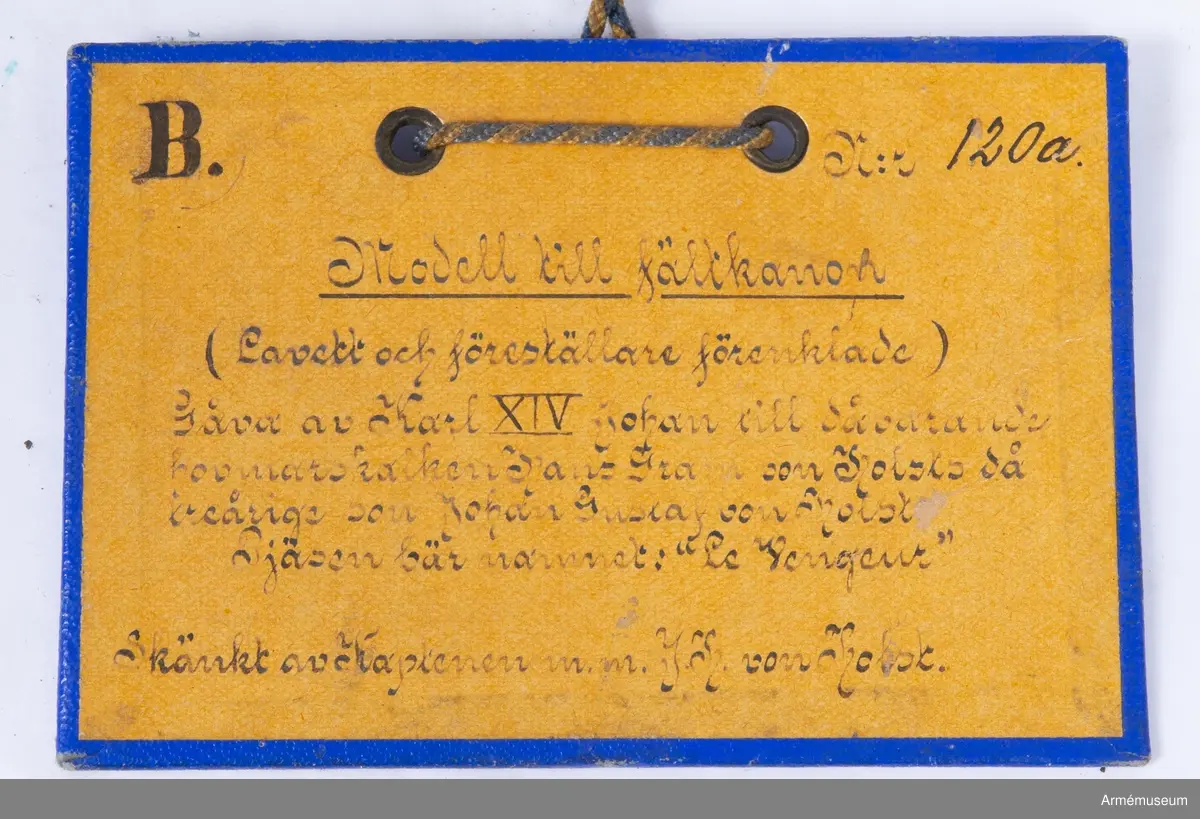 B. N:r 120a.
Modell till fältkanon
(Lavett och föreställare förenklade)
Gåva av Karl XIV Johan till dåvarande
hovmarskalken Hans Gram von Holsts då
treårige son Johan Gustaf von Holst
Pjäsen bär namnet: "Le Vengeur"
Skänkt av Kaptenen m.m. J.H. von Holst.
Armémuseum